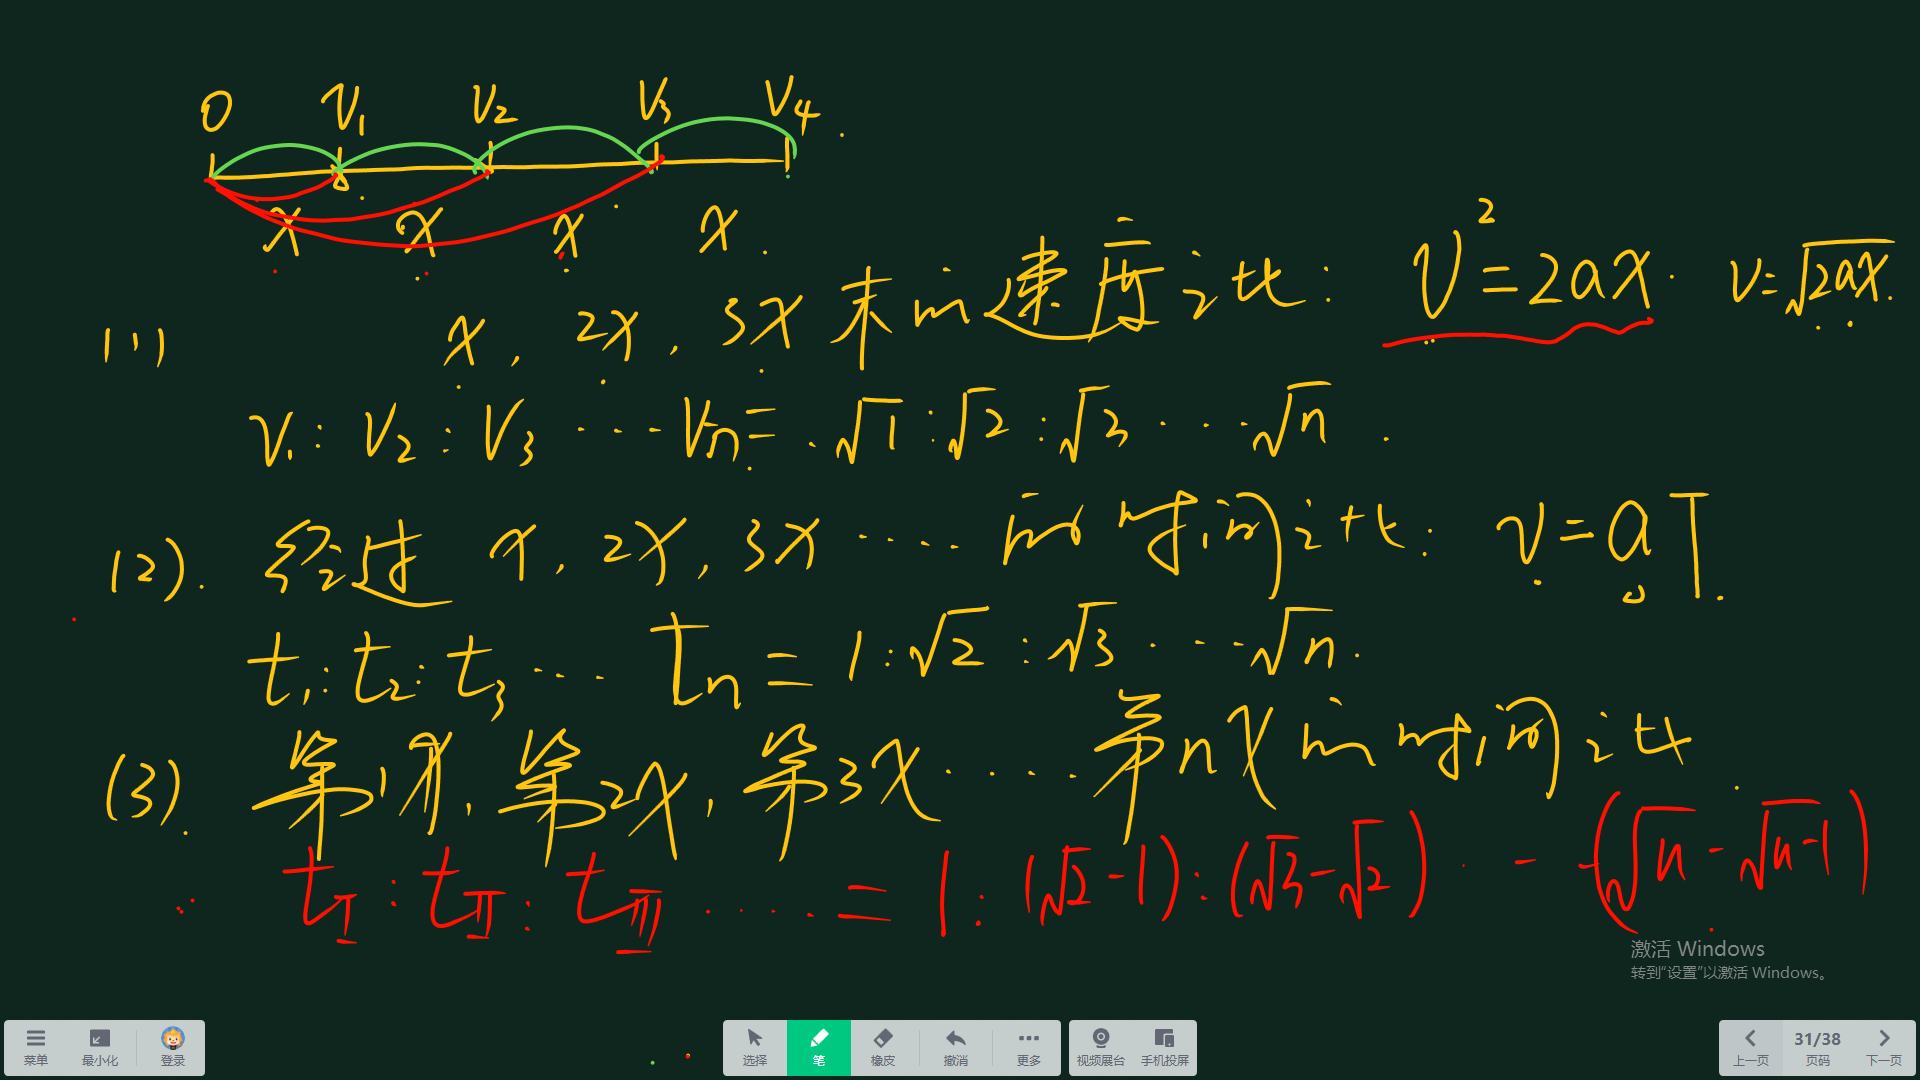 0 v₁ v₂ v₃ v₄
x x x x
(1) x, 2x, 3x 末的速度之比: v²=2ax. v=√2ax.
v₁:v₂:v₃……vn=√1:√2:√3……√n.
(2). 经过 x, 2x, 3x……的时间之比: v=aT.
t₁:t₂:t₃……tn=1:√2:√3……√n.
(3). 第1x, 第2x, 第3x……第nx的时间之比
tⅠ:tⅡ:tⅢ……=1:(√2-1):(√3-√2)……(√n-√n-1)
激活 Windows
转到“设置”以激活 Windows。
菜单 最小化 登录 选择 笔 橡皮 撤消 更多 视频展台 手机投屏 上一页 31/38 页码 下一页